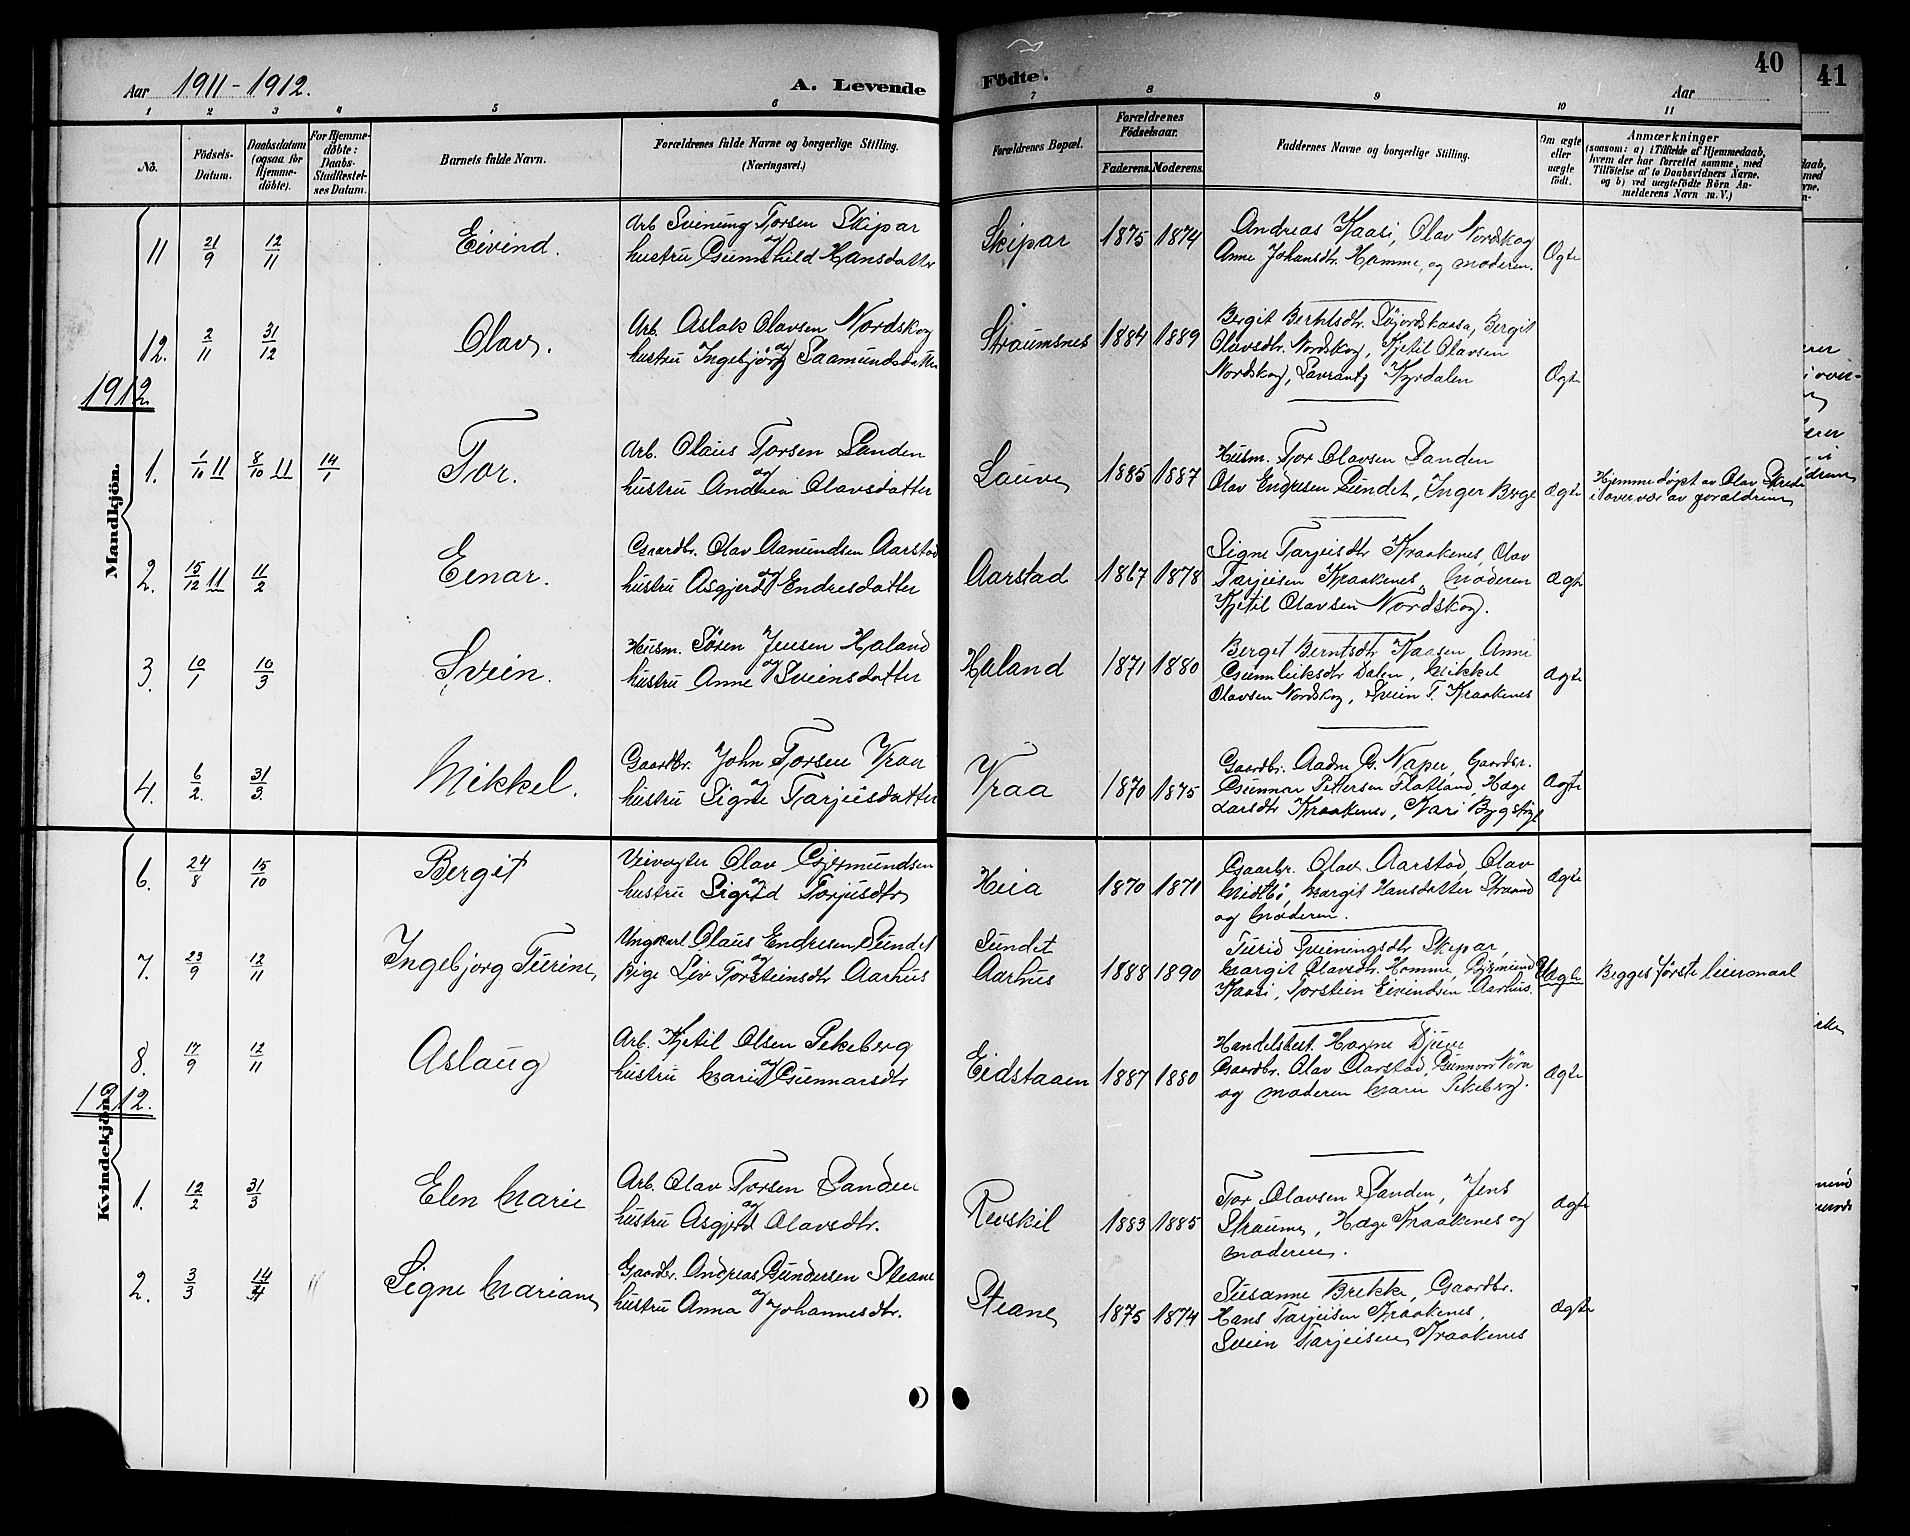 Aar 1911-1912. A. Levende Fødte. 40
Aar
41
1 2 3 4 5 6 7 8 9 10 11
No. Födsels-Datum. Daabsdatum (ogsaa for Hjemme-döbte). For Hjemme-döbte: Daabs-Stadfæstel-ses Datum. Barnets fulde Navn. Forældrenes fulde Navne og borgerlige Stilling. (Næringsvei.) Forældrenes Bopæl. Forældrenes Födselsaar. Faderens. Moderens. Faddernes Navne og borgerlige Stilling. Om ægte eller uægte födt. Anmærkninger
(saasom: a) i Tilfælde af Hjemmedaab,
hvem der har forrettet samme, med
Tilföielse af to Daabsvidners Navne,
og b) ved uægtefödte Börn An-
melderens Navn m. V.)
Mandkjön.
11 21/9 12/11 Eivind. Arb Sveinung Torsen Skipar
og
hustru Gunnhild Hansdatter Skipar 1875 1874 Andreas Kaasi, Olav Nordskog
Anne Johansdtr. Homme, og moderen. Ægte
12. 2/11 31/12 Olav. Arb. Aslak Olavsen Nordskog
og
hustru Ingebjörg Saamundsdatter Straumsnes 1884 1889 Bergit Berntsdtr. Bergit
Olavsdtr. Nordskog, Kjetil Olavsen
Nordskog, Lavrantz Kyrdalen Ægte
1912
1. 1/10 11 8/10 11 14/1 Tor. Arb. Olaus Torsen Sanden
og
hustru Andrea Olavsdatter Lauve 1885 1887 Husm. Tor Olavsen Sanden
Olav Endresen Sundet, Inger Berge Ægte Hjemme døpt av Olav
i overvær av foraldrene
2. 15/12 11 11/2 Einar. Gaardbr. Olav Aanundsen Aarstad
og
hustru Asgjerd Endresdatter Aarstad 1867 1878 Signe Tarjeisdtr Kraakenes, Olav
Tarjeisen Kraakenes, Moderen
Kjetil Olavsen Nordskog. Ægte
3. 10/1 10/3 Svein. Husm. Sören Jensen Haland
og
hustru Anne Sveinsdatter Haland 1871 1880 Berget Berntsdtr Kaasen, Anne
Gunnleiksdtr Dalen, Mikkel
Olavsen Nordskog, Svein T. Kraakenes Ægte
4. 6/2. 31/3. Mikkel. Gaardbr. John Torsen Vraa
og
hustru Signe Tarjeisdatter Vraa 1870 1875 Gaardbr. Aadne G. Naper, Gaardbr.
Gunnar Pettersen Flatland, Hæge
Larsdtr Kraakenes, Kari Bygstöyl Ægte
Kvindekjön.
6. 24/8 15/10 Bergit Veivogter Olav Gjermundsen
og
hustru Sigrid Torjusdtr Heia 1870 1871 Gaarbr. Olav Aarstad, Olav
Midtbö, Margit Hansdatter Straand
og Moderen. Ægte
7. 23/9 12/11 Ingebjorg Turine, Ungkarl Olaus Endresen Sundet
og
pige Liv Torsteinsdtr Aarhus Sundet
Aarhus 1888 1890 Turid Sveiningsdtr Skipar,
Margit Olavsdtr. Homme, Gjermund
Kaasi, Torstein Eivindsen Aarhus. Uægte Begges første leiermaal
8. 17/9 12/11 Aslaug Arb. Kjetil Olsen Pekeberg
og
hustru Mari Gunnarsdtr Eidstaaen 1887 1880 Handelsbest. Djuve
Gaardbr. Olav Aarstad, Gunnar
og moderen Mari Pekeberg. Ægte
1912.
1. 12/2 31/3 Elen Marie Arb. Olav Torsen Sanden
og
hustru Asgjerd Olavsdtr. Revskil 1883 1885 Tor Olavsen Sanden, Jens
Straume, Hæge Kraakenes og
moderen. Ægte
2. 3/3 14/4 Signe Mariane Gaardbr. Andreas Gundersen Steane
og
hustru Anna Johannesdtr. Steane 1875 1874 Susanne Brekke, Gaardbr.
Hans Tarjeisen Kraakenes,
Svein Tarjeisen Kraakenes Ægte